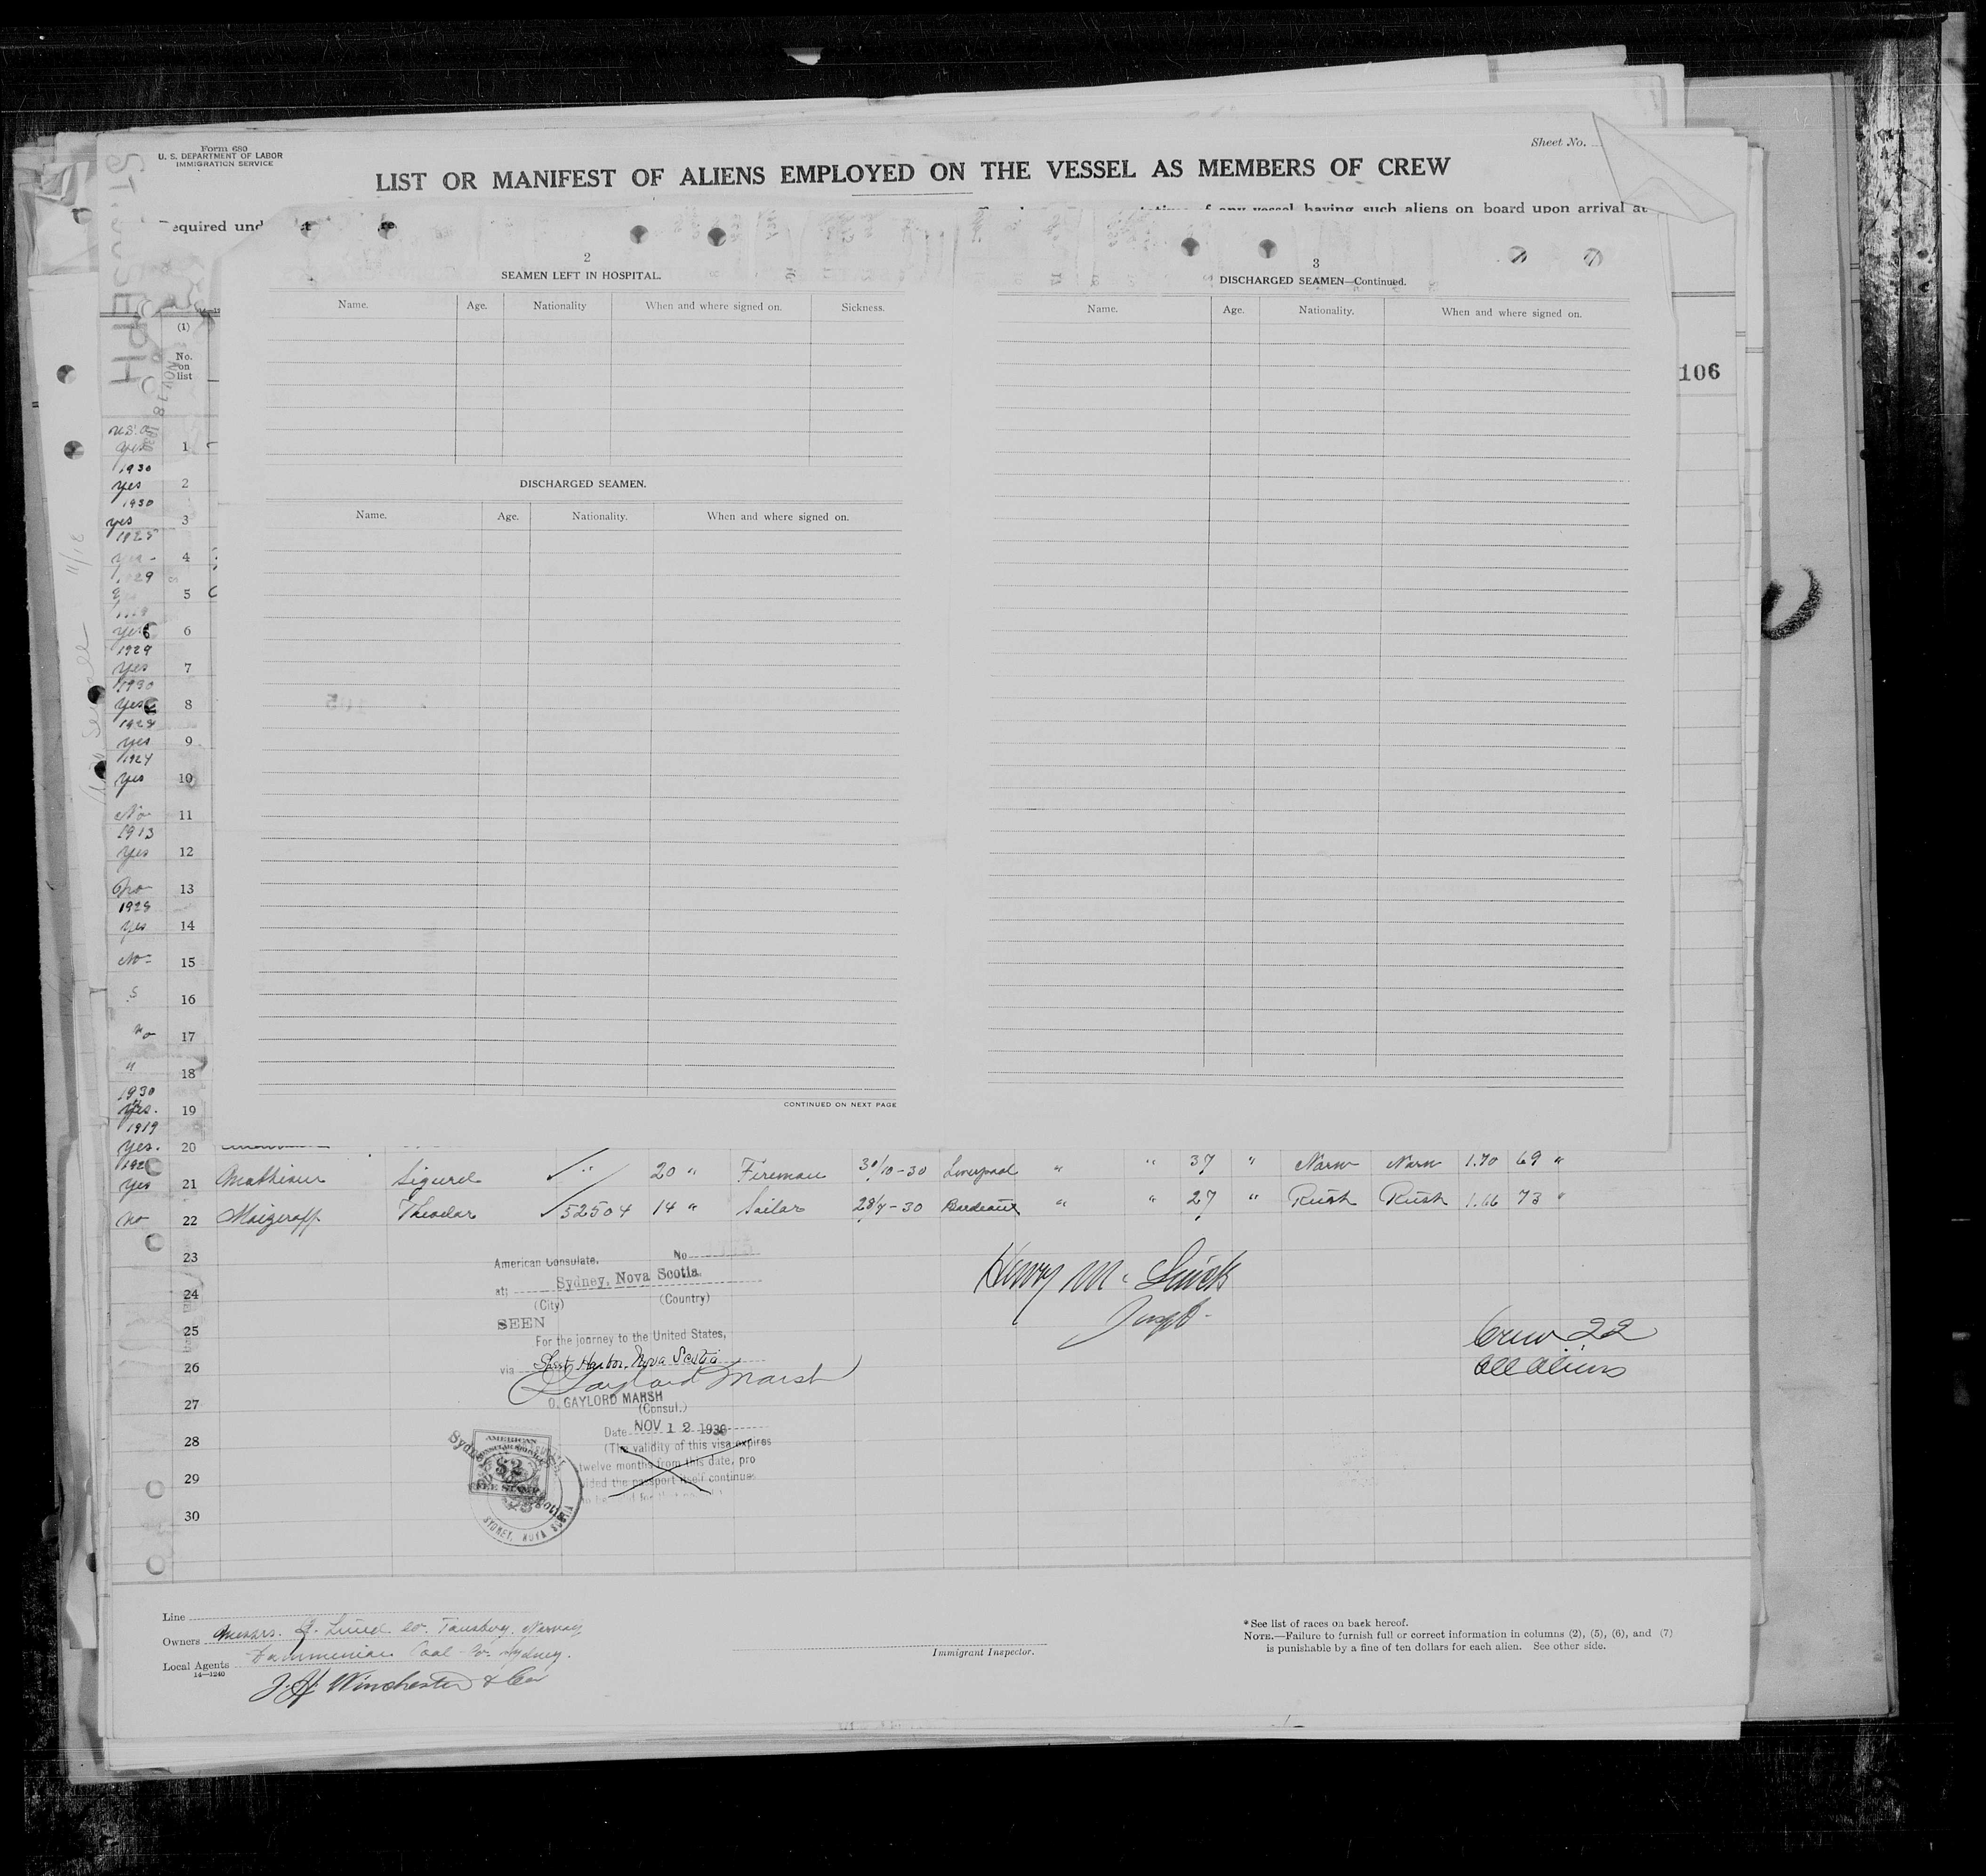 Form 680
U. S. DEPARTMENT OF LABOR
IMMIGRATION SERVICE
Sheet No.
LIST OR MANIFEST OF ALIENS EMPLOYED ON THE VESSEL AS MEMBERS OF CREW
equired und
of any vessel having such aliens on board upon arrival at
2
SEAMEN LEFT IN HOSPITAL.
Name. Age. Nationality When and where signed on. Sickness.
DISCHARGED SEAMEN.
Name. Age. Nationality. When and where signed on.
CONTINUED ON NEXT PAGE
3
DISCHARGED SEAMEN—Continued.
Name. Age. Nationality. When and where signed on.
106
(1)
No.
on
list
yes 1
1930
yes 2
1930
yes 3
1925
yes - 4
1929
5
yes 6
1929
yes 7
1930
yes 8
1928
yes 9
1924
yes 10
No 11
1913
yes 12
no 13
1928
yes 14
No - 15
16
no 17
" 18
1930
yes. 19
1919
yes. 20
yes 21 Mathisen Sigurd " 20 " Fireman 30/10-30 Liverpool " " 37 " Norw Norw 1.70 69 "
no 22 Maigeroff Theodor 52504 14 " Sailor 28/7-30 Bordeaux " " 27 " Rush Rush 1.66 73 "
23
24
25
26
27
28
29
30
American Consulate. No.
at: Sydney, Nova Scotia
(City) (Country)
SEEN
For the journey to the United States,
via Sheet Harbor, Nova Scotia
O Gaylord Marsh
O. GAYLORD MARSH
(Consul.)
Date NOV 12 1930
(The validity of this visa expires
twelve months from this date, pro
ided the passport itself continues
AMERICAN
CONSULAR SERVICE
$2
FEE STAMP
SYDNEY, NOVA SCOTIA
Henry M.
Crew 22
all aliens
Line
Owners Messrs. Lund Co. Tonsberg. Norway
Local Agents Dominion Coal Co. Sydney.
14—1240
J. H. Winchester & Co
Immigrant Inspector.
* See list of races on back hereof.
NOTE.—Failure to furnish full or correct information in columns (2), (5), (6), and (7)
is punishable by a fine of ten dollars for each alien. See other side.